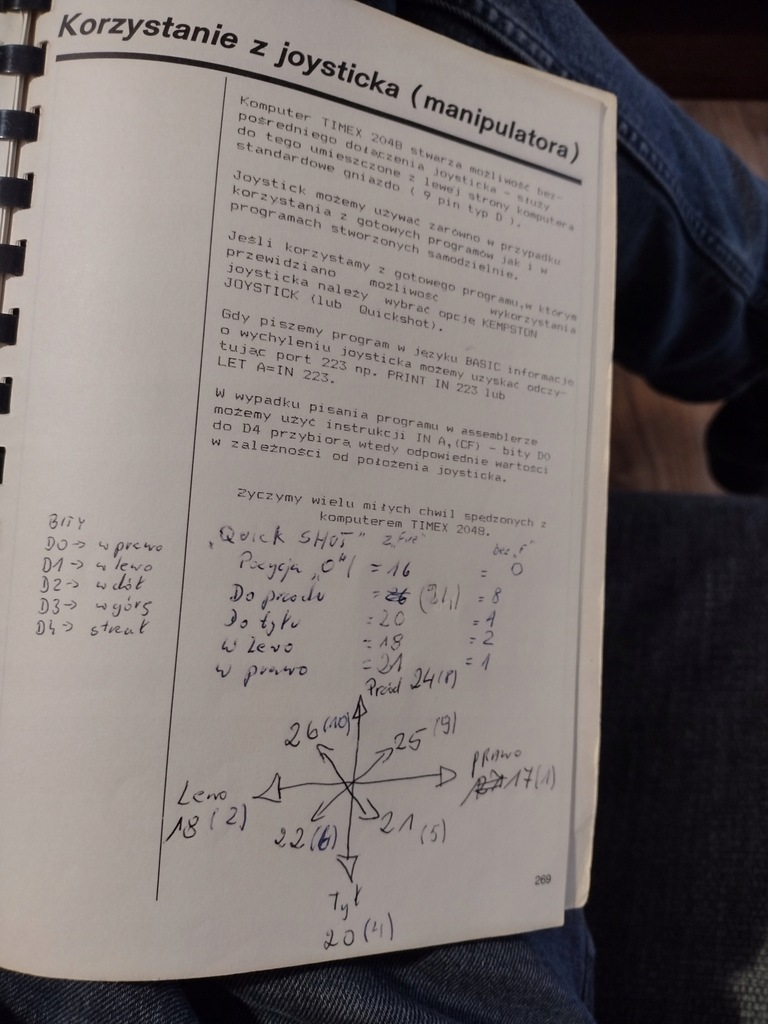 Korzystanie z joysticka (manipulatora)
Komputer TIMEX 2048 stwarza możliwość bez-
pośredniego dołączenia joysticka - służy
do tego umieszczone z lewej strony komputera
standardowe gniazdo ( 9 pin typ D ).
Joystick możemy używać zarówno w przypadku
korzystania z gotowych programów jak i w
programach stworzonych samodzielnie.
Jeśli korzystamy z gotowego programu,w które
przewidziano możliwość wykorzystania
joysticka należy wybrać opcje KEMPSTON
JOYSTICK (lub Quickshot).
Gdy piszemy program w języku BASIC informacje
o wychyleniu joysticka możemy uzyskać odczy-
tując port 223 np. PRINT IN 223 lub
LET A=IN 223.
W wypadku pisania programu w assemblerze
możemy użyć instrukcji IN A,(CF) - bity D0
do D4 przybiorą wtedy odpowiednie wartości
w zależności od położenia joysticka.
Życzymy wielu miłych chwil spędzonych z
komputerem TIMEX 2048.
BITY
D0 → w prawo
D1 → w lewo
D2 → w dół
D3 → w górę
D4 → strzał
"Quick SHOT" z "F" bez "F"
Pozycja "0" = 16 = 0
Do przodu (21,) = 8
Do tyłu = 20 = 4
W Lewo = 18 = 2
w prawo = 21 = 1
Przód 24(8)
26(10)
25(9)
PRAWO
17(1)
Lewo
18(2)
22(6)
21(5)
Tył
20(4)
269